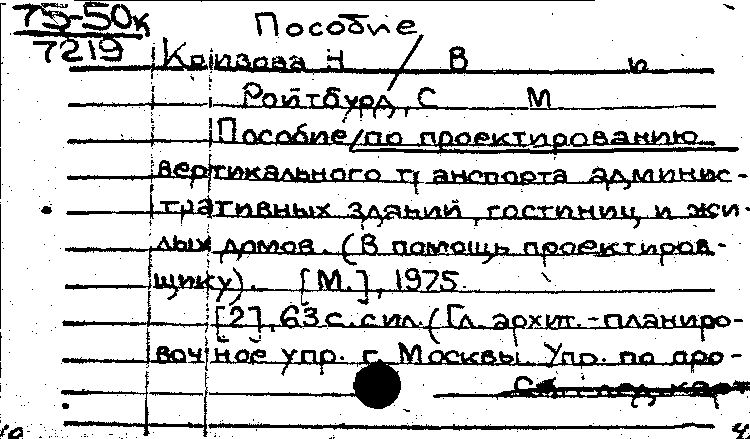 75-50к
7219
Пособие
Кризова Н В и
Ройтбурд, С М
Пособие/по проектированию
вертикального транспорта админис-
тративных зданий, гостиниц и жи-
лых домов. (В помощь проектиров-
щику). [М.], 1975.
[2], 63 с. с ил. (Гл. архит.-планиро-
вочное упр. г. Москвы. Упр. по про-
См. след. карт